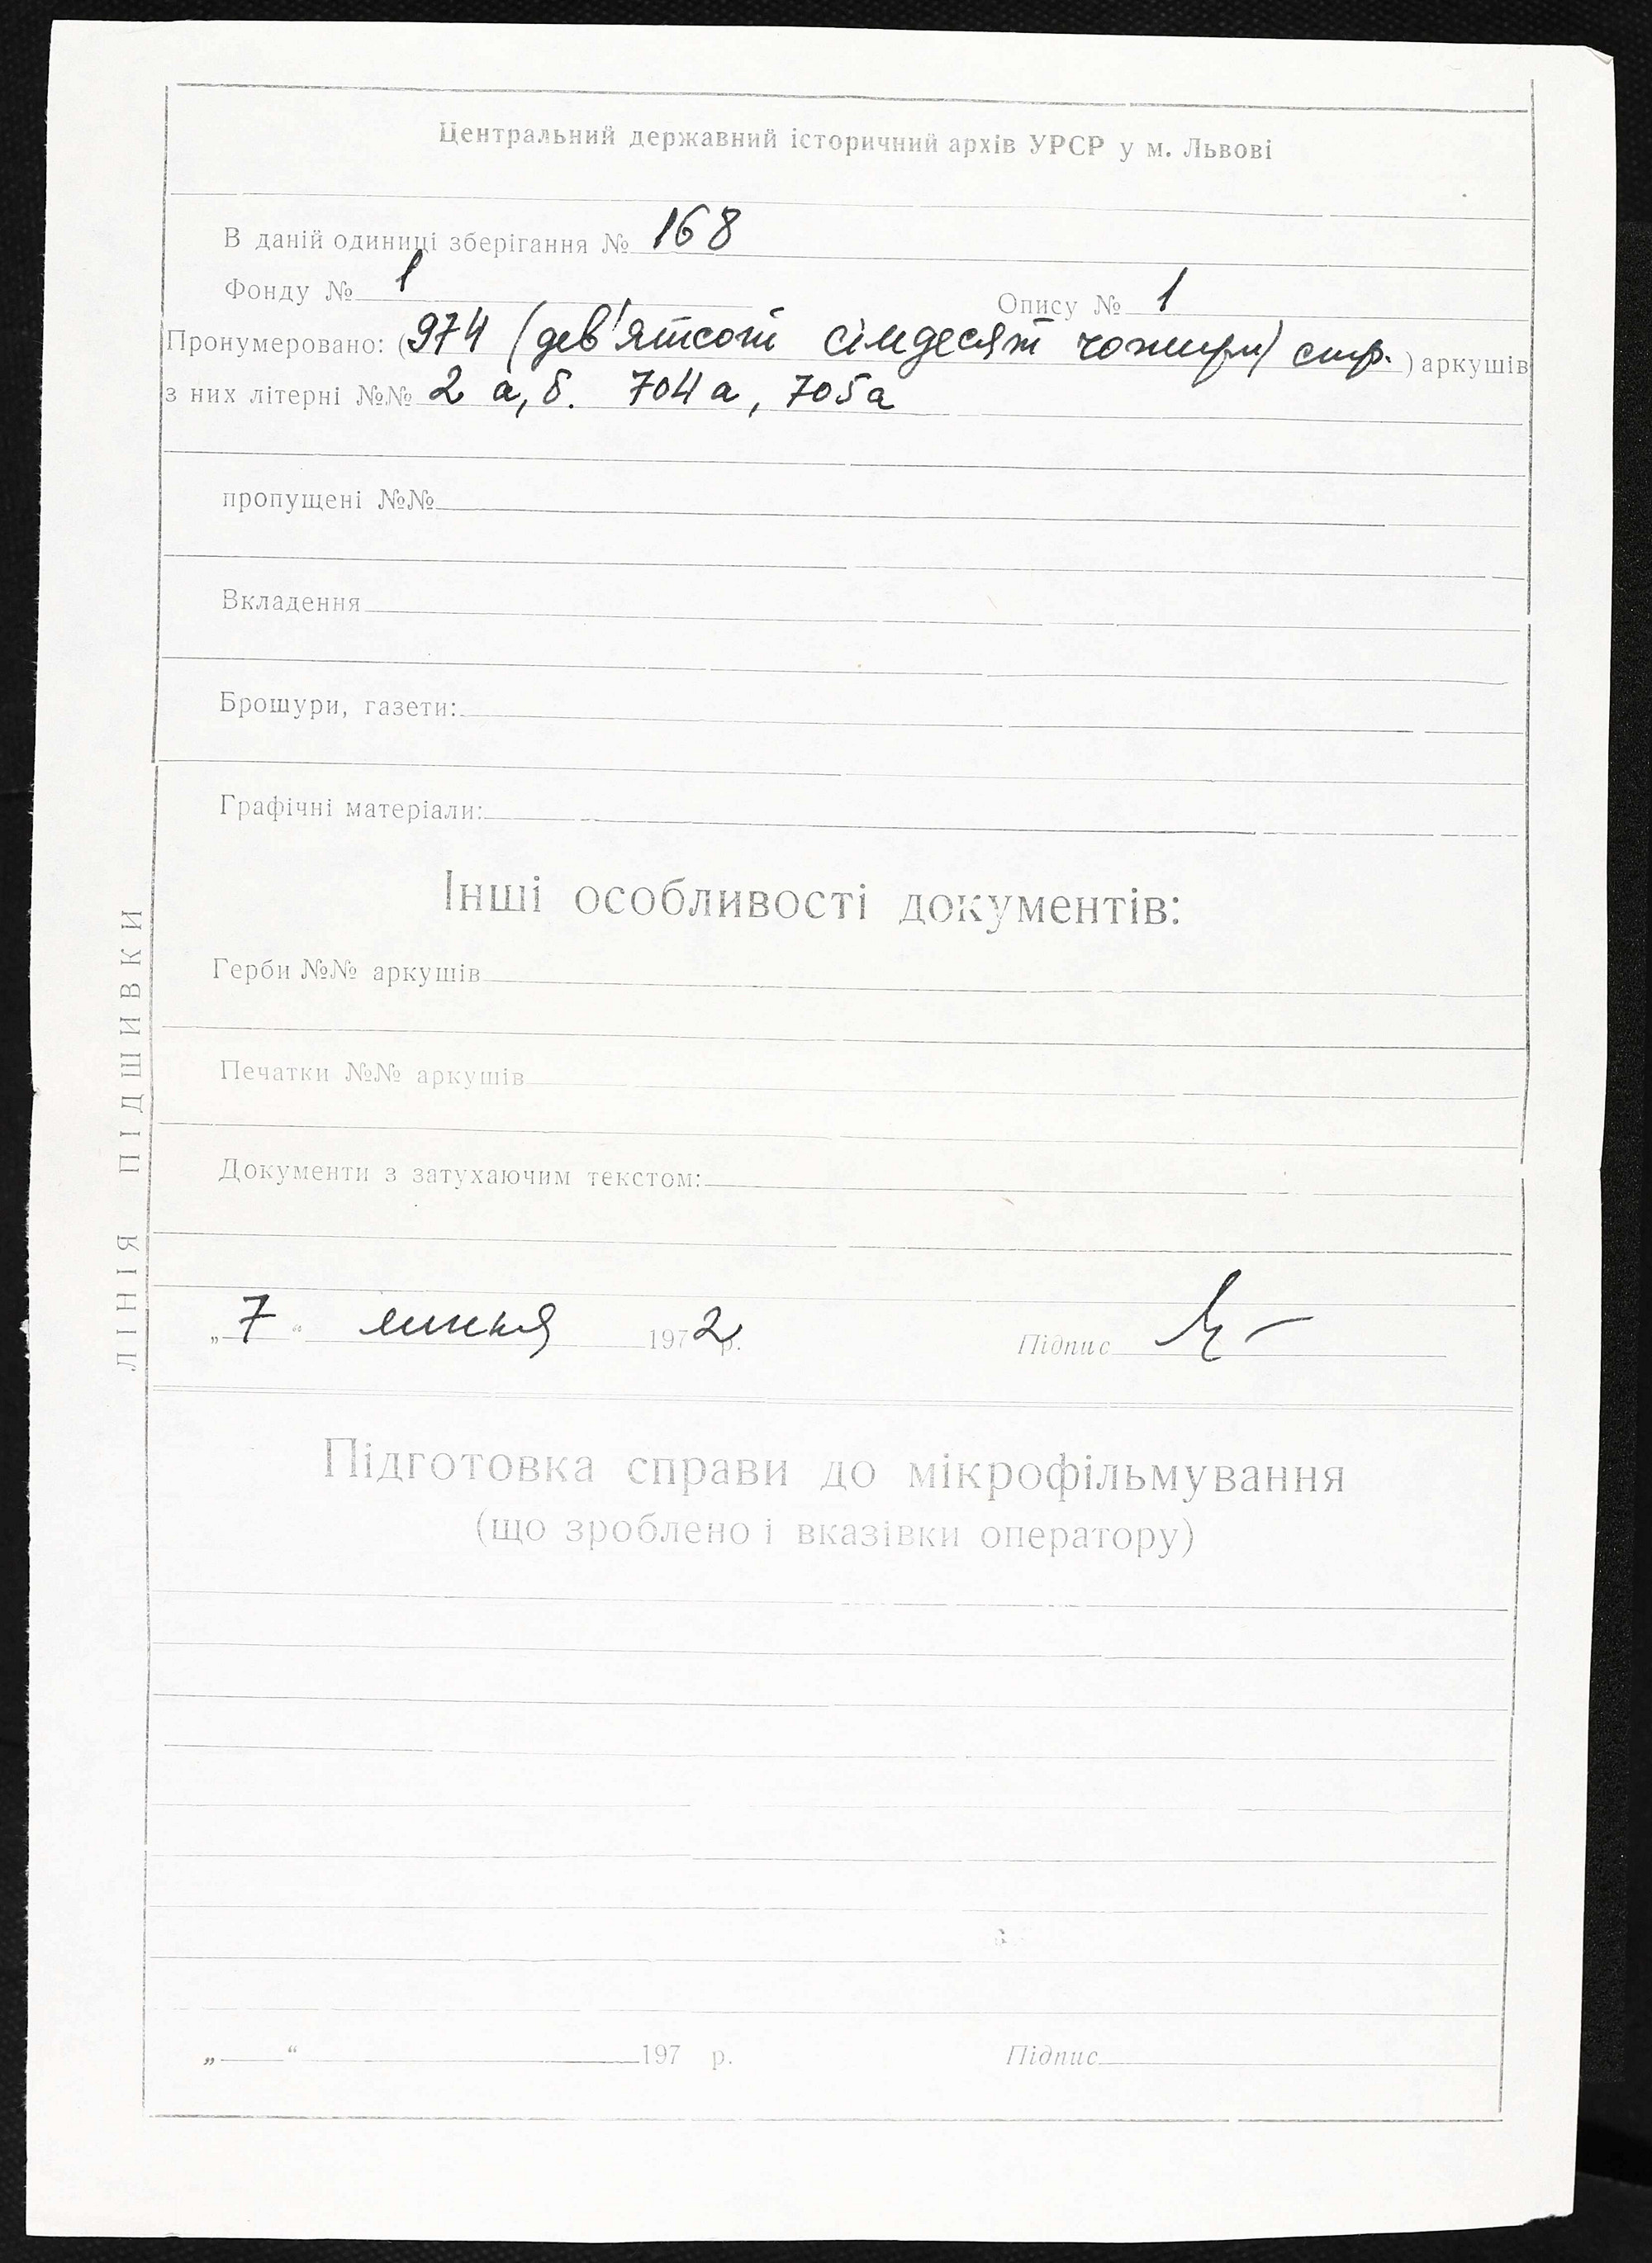 Центральний державний історичний архів УРСР у м. Львові
В даній одиниці зберігання № 168
Фонду № 1 Опису № 1
Пронумеровано: (974 (дев'ятсот сімдесят чотири) стр.) аркушів
з них літерні №№ 2 а, б. 704 а, 705 а
пропущені №№
Вкладення
Брошури, газети:
Графічні матеріали:
Інші особливості документів:
Герби №№ аркушів
Печатки №№ аркушів
Документи з затухаючим текстом:
„7“ липня 1972 р. Підпис
Підготовка справи до мікрофільмування
(що зроблено і вказівки оператору)
„ “ 197 р. Підпис
ЛІНІЯ ПІДШИВКИ